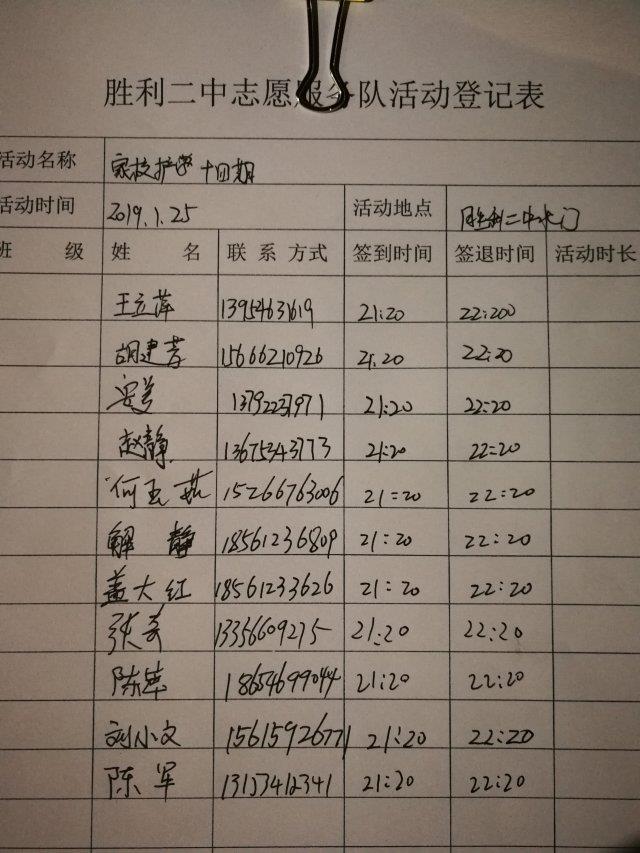 胜利二中志愿服务队活动登记表
活动名称 家校护学 十四期
活动时间 2019.1.25 活动地点 胜利二中水门
班 级 姓 名 联 系 方式 签到时间 签退时间 活动时长
王立萍 13954631619 21:20 22:200
胡建芳 15666210926 21.20 22:20
安 13792237971 21:20 22:20
赵静 13675343773 21:20 22:20
何玉燕 15266763006 21:20 22:20
解 静 18561236809 21:20 22:20
盖大红 18561233626 21:20 22:20
张 13356609275 21:20 22:20
陈萍 18654699044 21:20 22:20
刘小文 15615926771 21:20 22:20
陈 军 13153412341 21:20 22:20